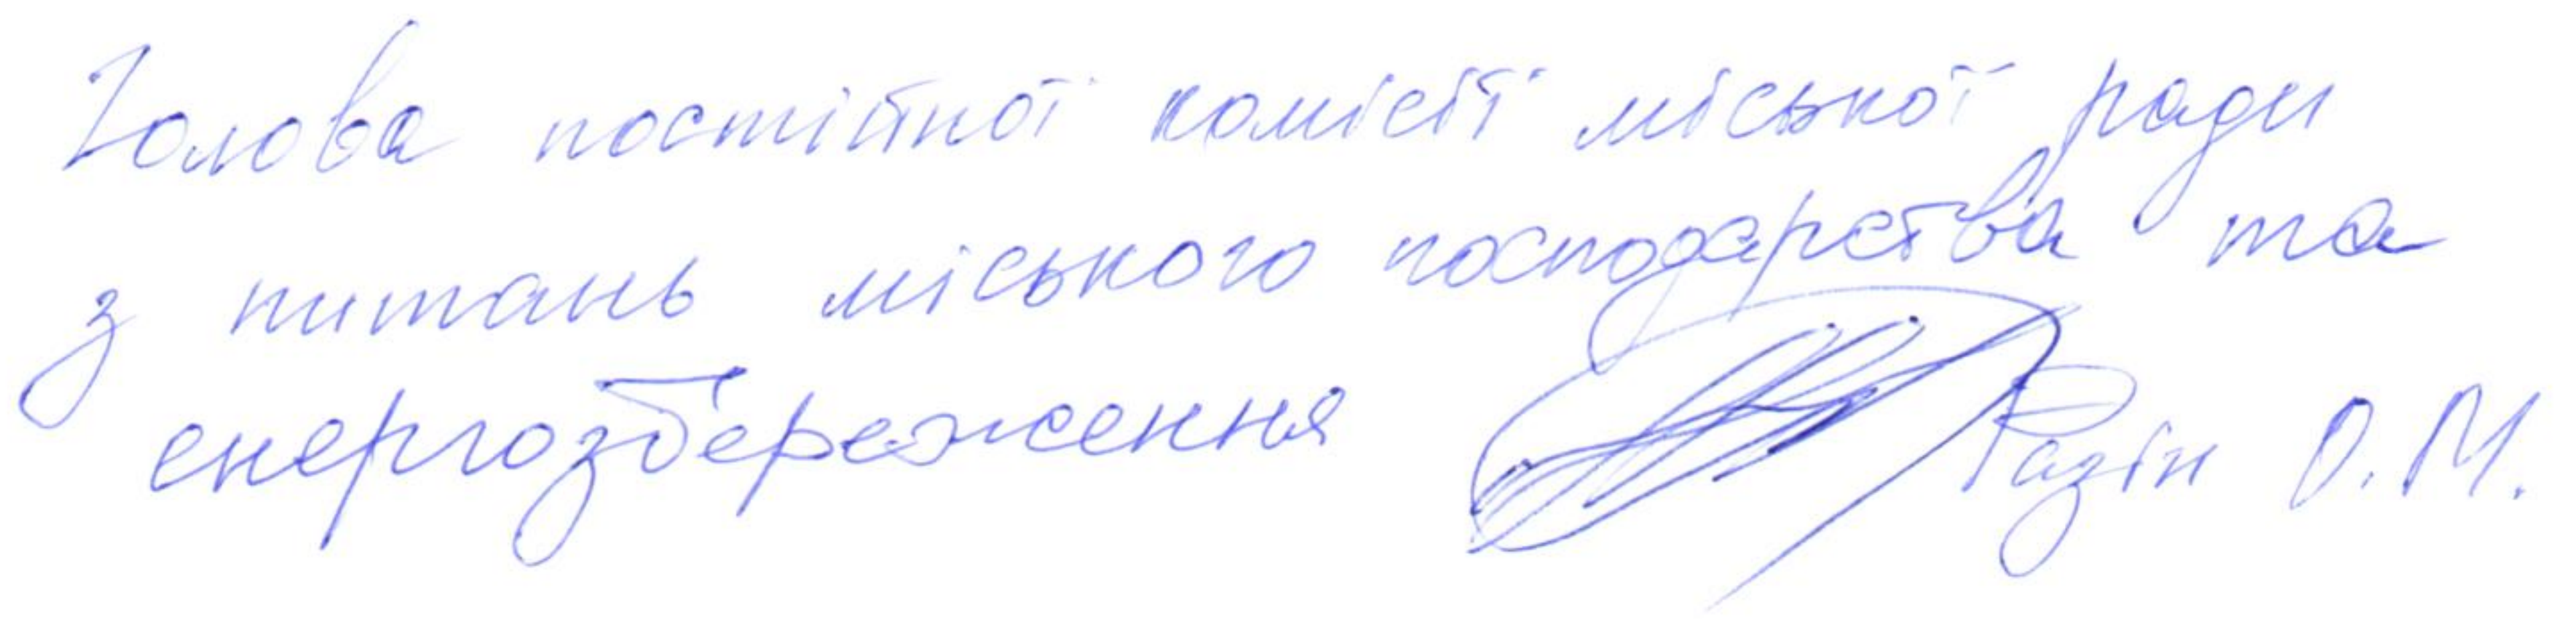 Голова постійної комісії міської ради
з питань міського господарства та
енергозбереження Разін О.М.